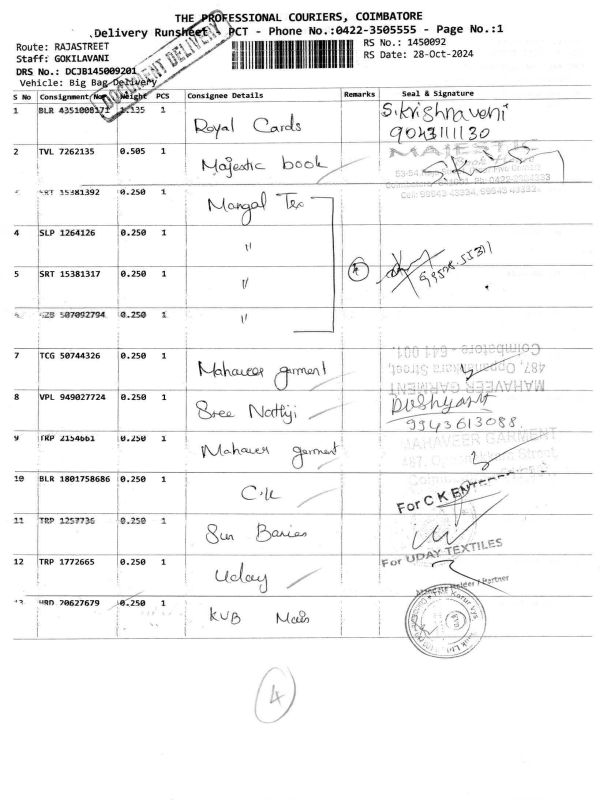 THE PROFESSIONAL COURIERS, COIMBATORE
Delivery Runsheet PCT - Phone No.:0422-3505555 - Page No.:1
Route: RAJASTREET
Staff: GOKILAVANI
DRS No.: DCJB145009201
Vehicle: Big Bag Delivery
RS No.: 1450092
RS Date: 28-Oct-2024
DOCUMENT DELIVERY
S No Consignment No Weight PCS Consignee Details Remarks Seal & Signature
1 BLR 4351000171 1.135 1 Royal Cards S.krishnaveni
9043111130
2 TVL 7262135 0.505 1 Majestic book MAJESTIC
Book House
Five Corners
3 SRT 15381392 0.250 1 Mangal Tex
4 SLP 1264126 0.250 1 "
5 SRT 15381317 0.250 1 " 4
6 507092794 0.250 1 "
7 TCG 50744326 0.250 1 Mahaveer garment Coimbatore - 641 001.
487, Oppanakara Street,
MAHAVEER GARMENT
8 VPL 949027724 0.250 1 Sree Nathji Dushyant
9943613088
9 TRP 2154661 0.250 1 Mahaveer garment MAHAVEER GARMENT
487, Street
10 BLR 1801758686 0.250 1 C.K For C K
11 TRP 1257736 0.250 1 Sun
12 TRP 1772665 0.250 1 Uday For UDAY TEXTILES
13 HRD 20627679 0.250 1 KVB Main
4